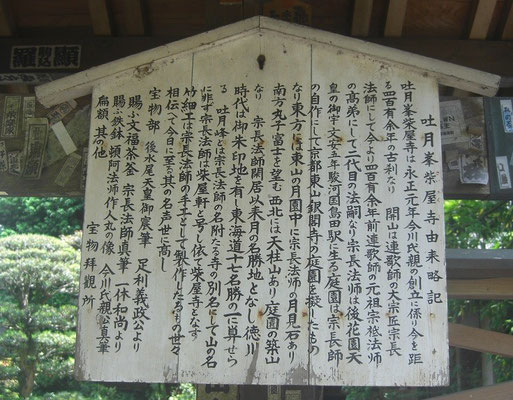 吐月峯柴屋寺由来略記
吐月峯柴屋寺は永正元年今川氏親の創立に係り今を距
る四百有余年の古刹なり 開山は連歌師の大宗匠宗長
法師にして今より四百有余年前連歌師の元祖宗祇法師
の高弟にして二代目の法嗣なり宗長法師は後花園天
皇の御宇文安五年駿河国島田駅に生る庭園は宗長師
の自作にして京都東山銀閣寺の庭園を擬したもの
なり東方には東山の月園中に宗長法師の月見石あり
南方丸子富士を望む西北には天柱山あり庭園の築山
なり 宗長法師閑居以来月の名勝地となし徳川
時代は御朱印地を有し東海道十七名勝の一に算せら
る 吐月峰とは宗長法師の名附たる寺の別名にして山の名
に非ず宗長法師は柴屋軒と号し依て柴屋寺となす
竹細工は宗長法師の手工として製作したるもの世々
相伝へて今日に至る其の名声世に高し
宝物部 後水尾天皇御宸筆 足利義政公より
賜ふ文福茶釜 宗長法師真筆 一休和尚より
賜ふ鉄鉢 頓阿法師作人丸の像 今川氏親公真筆
扁額 其の他
宝物拝観所